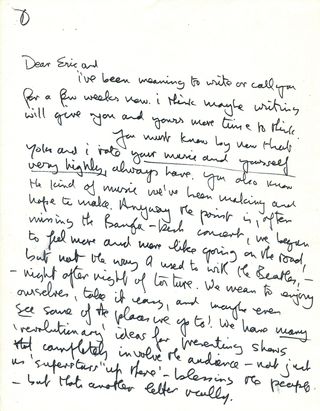 1
Dear Eric and
i've been meaning to write or call you
for a few weeks now. i think maybe writing
will give you and yours more time to think.
You must know by now that
Yoko and i rate your music and yourself
very highly, always have. You also know
the kind of music we've been making and
hope to make. Anyway the point is, after
missing the Bangla-Desh concert, we began
to feel more and more like going on the road,
but not the way I used to with the Beatles, -
- night after night of torture. We mean to enjoy
ourselves, take it easy, and maybe even
see some of the places we go to! We have many
'revolutionary' ideas for presenting shows
that completely involve the audience - not just
as 'superstars' up there' - blessing the people
- but that's another letter really.